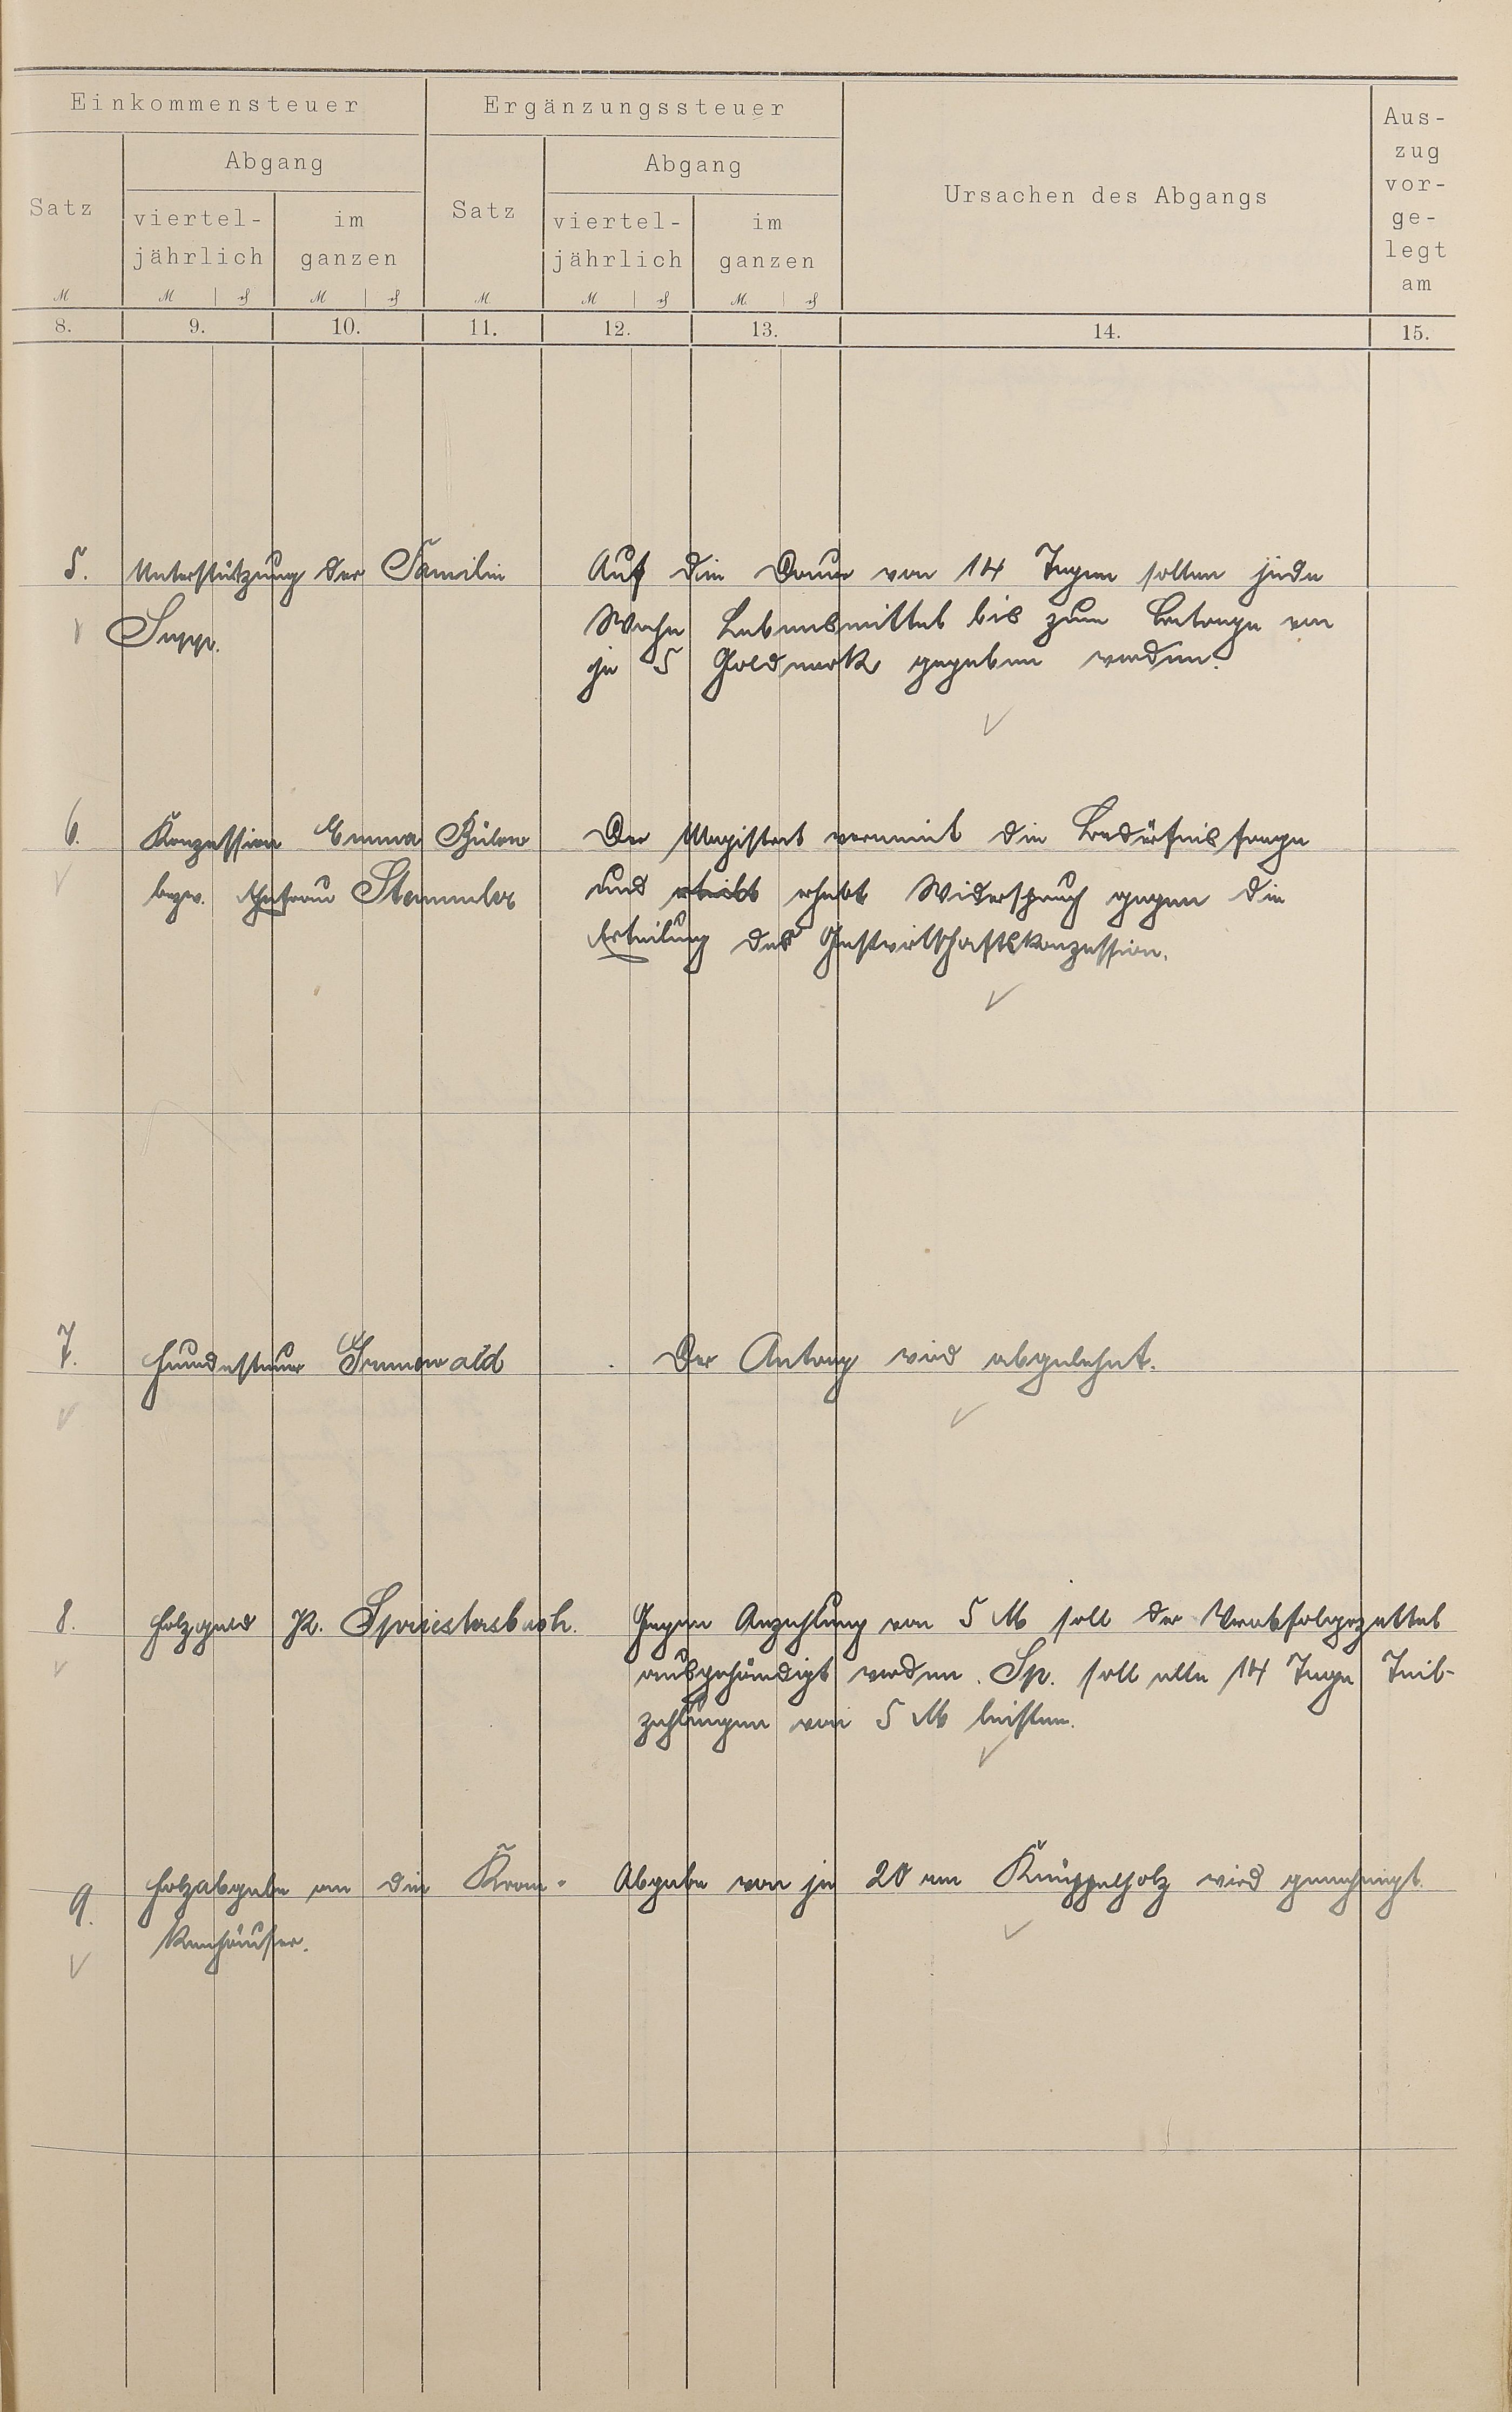 Einkommensteuer
Ergänzungssteuer
Ursachen des Abgangs
Aus-
zug
vor-
ge-
legt
am
Satz
Abgang
Satz
Abgang
viertel-
jährlich
im
ganzen
viertel-
jährlich
im
ganzen
M M ₰ M ₰ M M ₰ M ₰
8. 9. 10. 11. 12. 13. 14. 15.
5. Unterstützung der Familie Auf die Dauer von 14 Tagen sollen jede
Sapp. Woche Lebensmittel bis zum Betrage von
je 5 Goldmark gegeben werden.
6. Konzession Emma Bülow Der Magistrat verneint die Bedürfnisfrage
bezw. Ehefrau Stemmler und erhebt Widerspruch gegen die
Erteilung der Gastwirtschaftskonzession.
7. Hundesteuer Grunewald Der Antrag wird abgelehnt.
8. Holzgeld R. Spriestersbach. Gegen Anzahlung von 5 M soll der Verabfolgezettel
ausgehändigt werden. Sp. soll alle 14 Tage Teil-
zahlungen von 5 M leisten.
9. Holzabgabe an die Kran- Abgabe von je 20 rm Knüppelholz wird genehmigt.
kenhäuser.